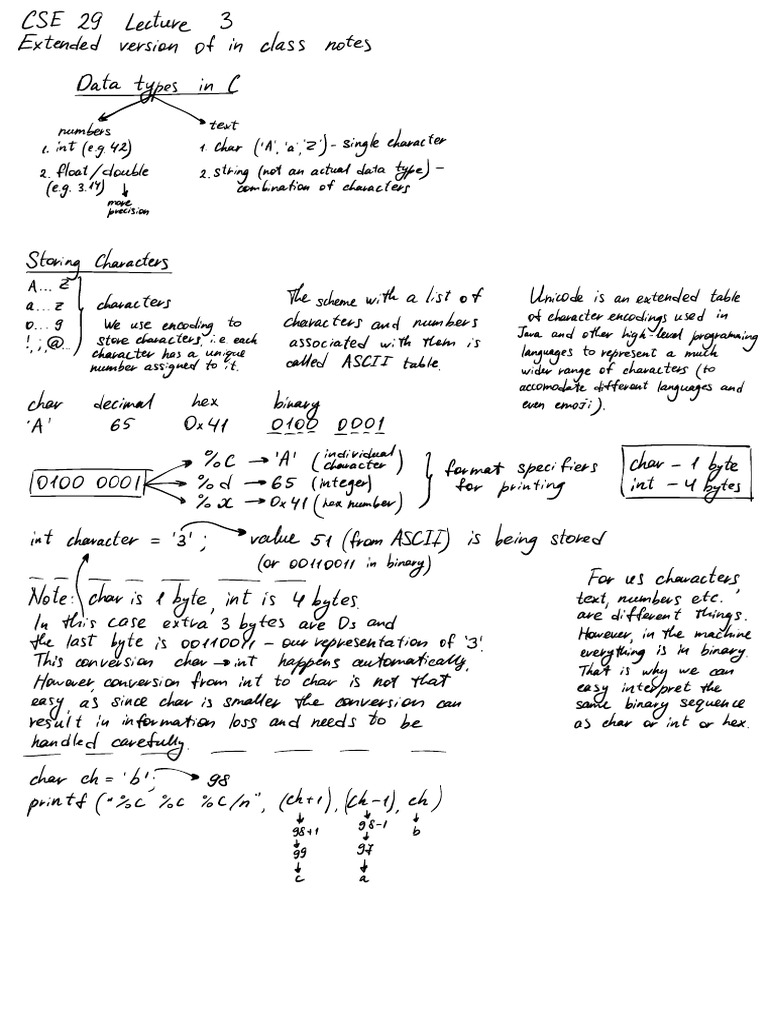 CSE 29 Lecture 3
Extended version of in class notes
Data types in C
numbers
1. int (e.g. 42)
2. float/double
(e.g. 3.14)
more
precision
text
1. char ('A', 'a', 'Z') - single character
2. string (not an actual data type) -
combination of characters
Storing Characters
A... Z
a... z
0... 9
! , ; , @...
characters
We use encoding to
store characters, i.e. each
character has a unique
number assigned to it.
The scheme with a list of
characters and numbers
associated with them is
called ASCII table.
Unicode is an extended table
of character encodings used in
Java and other high-level programing
languages to represent a much
wider range of characters (to
accomodate different languages and
even emoji).
char decimal hex binary
'A' 65 0x41 0100 0001
0100 0001
%c → 'A' (individual character)
%d → 65 (integer)
%x → 0x41 (hex number)
format specifiers
for printing
char - 1 byte
int - 4 bytes
int character = '3' ; value 51 (from ASCII) is being stored
(or 00110011 in binary)
Note: char is 1 byte, int is 4 bytes.
In this case extra 3 bytes are 0s and
the last byte is 00110011 - our representation of '3'.
This conversion char → int happens automatically.
However conversion from int to char is not that
easy, as since char is smaller the conversion can
result in information loss and needs to be
handled carefully.
For us characters,
text, numbers etc.
are different things.
However, in the machine
everything is in binary.
That is why we can
easy interpret the
same binary sequence
as char or int or hex.
char ch = 'b'; → 98
printf ("%c %c %c/n", (ch+1), (ch-1), ch)
98+1 98-1 b
99 97
c a